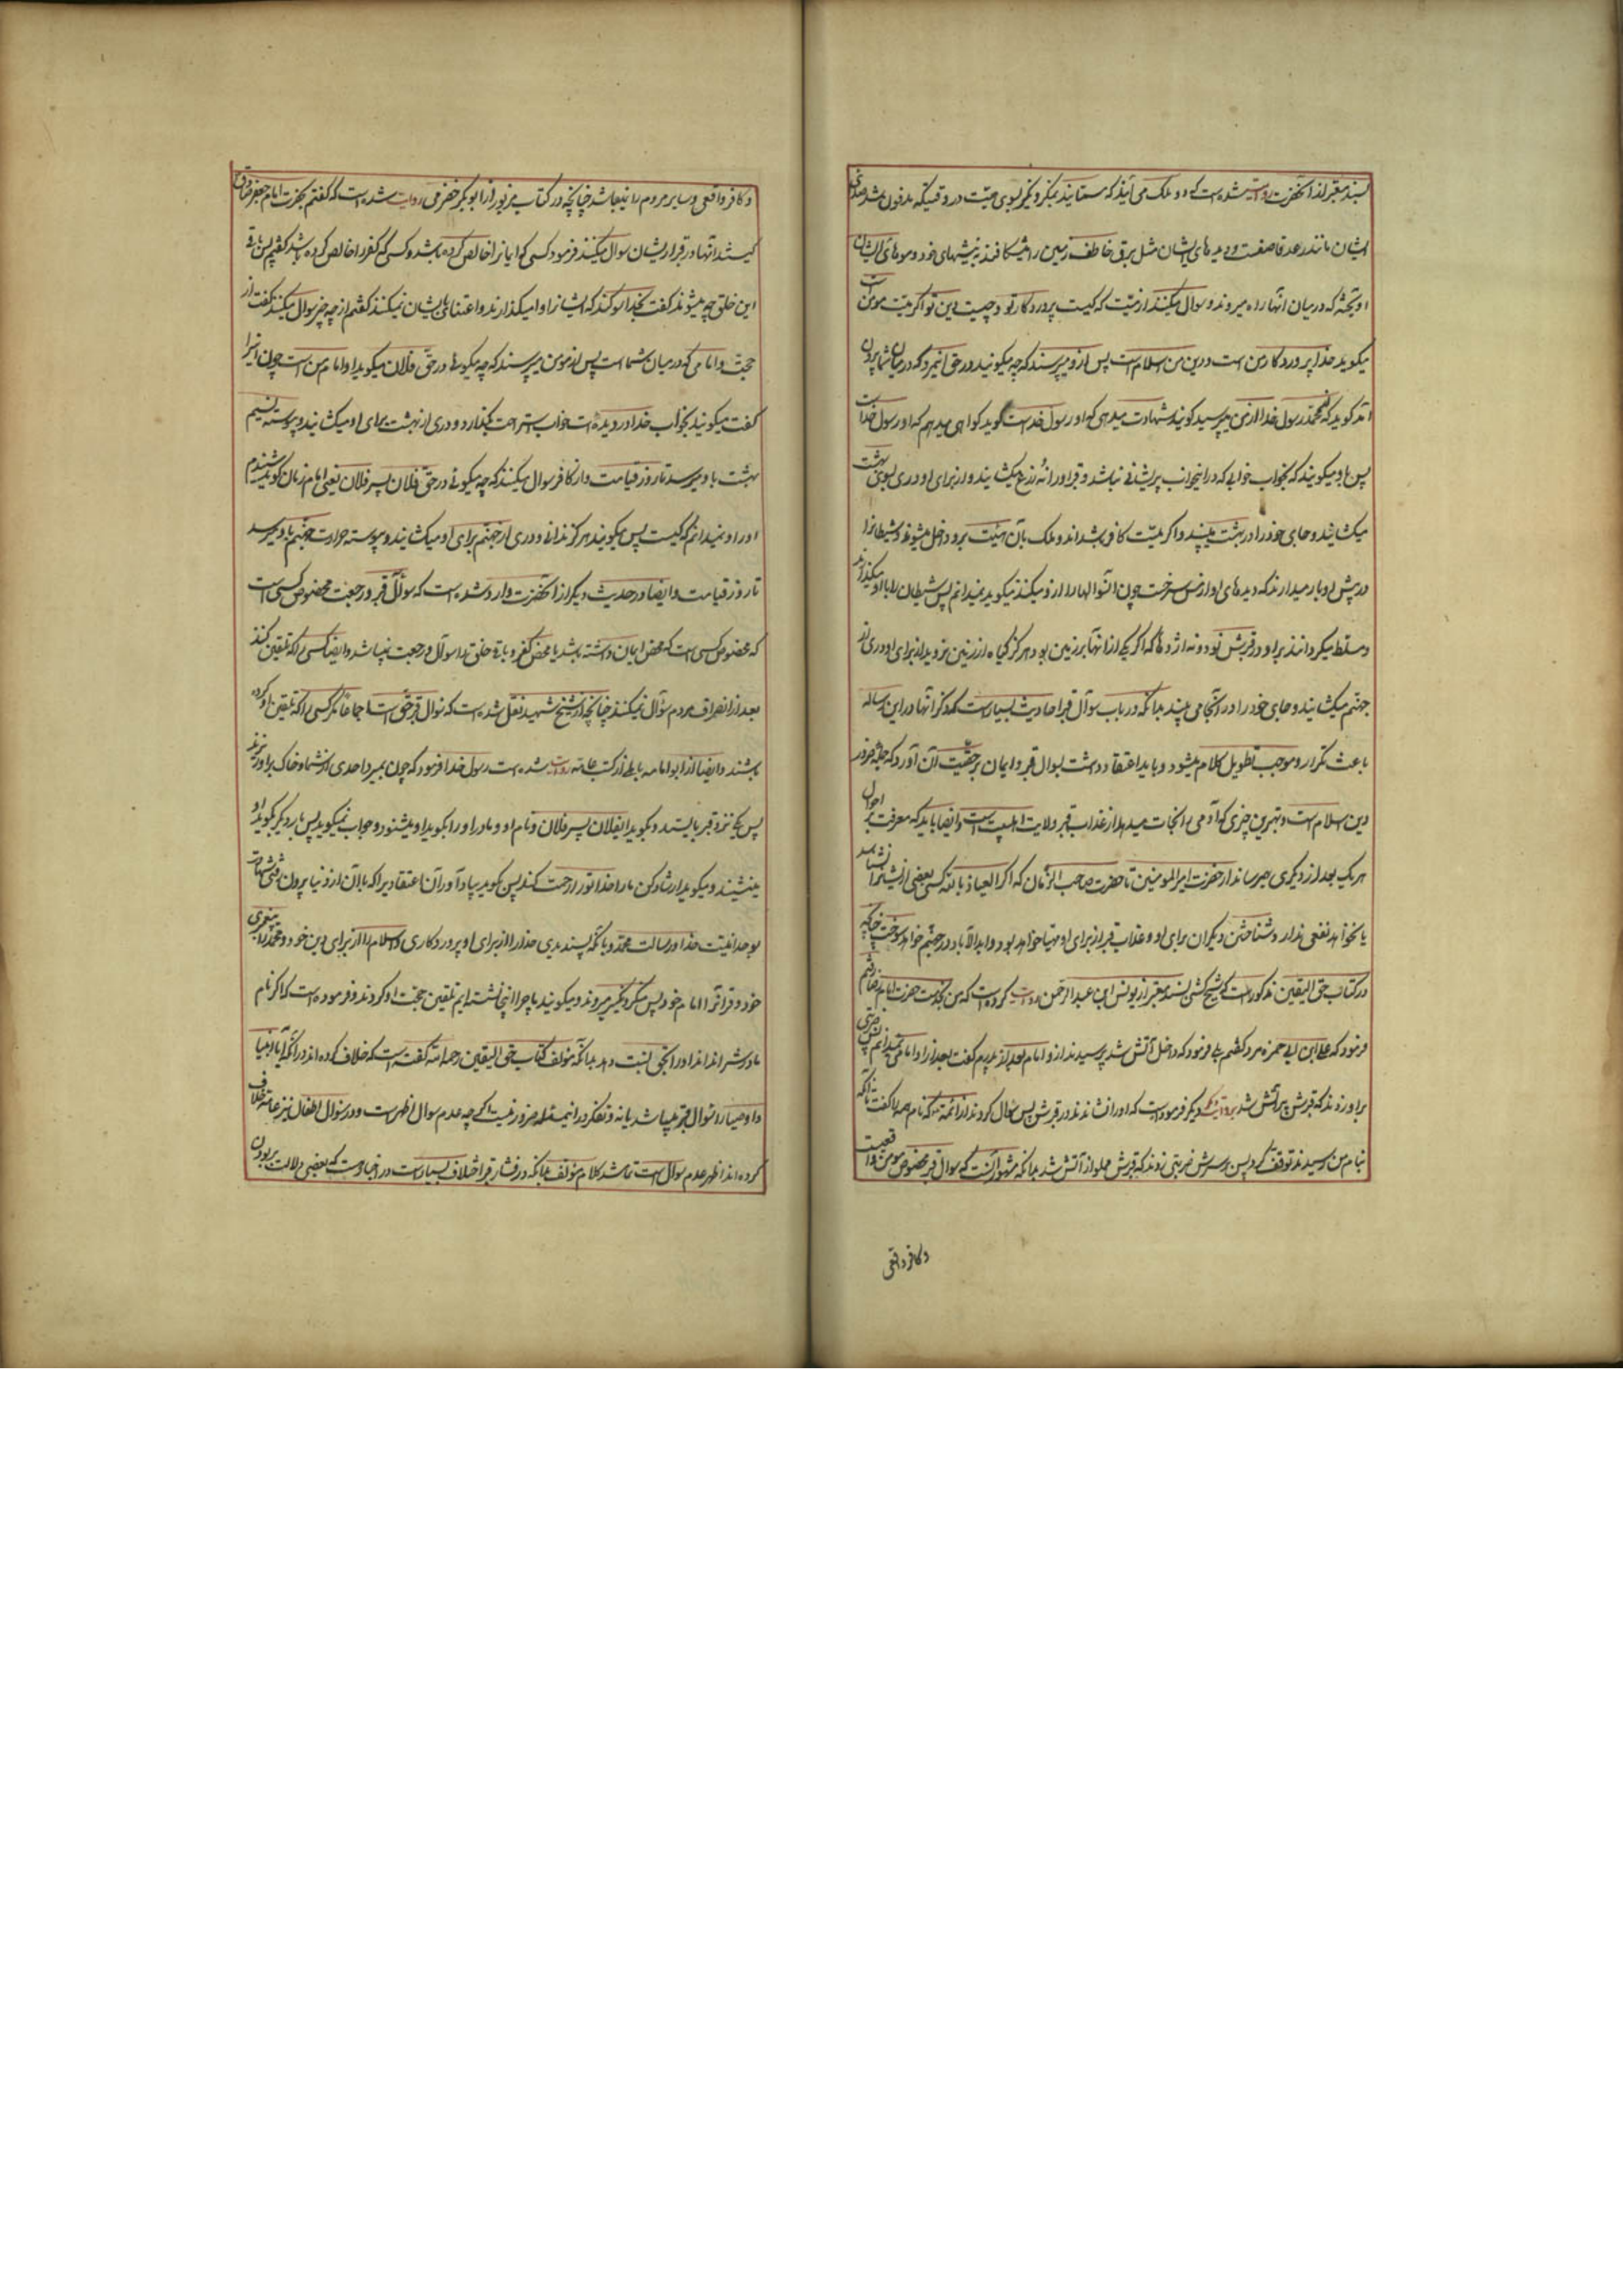 بسند معتبر از آنحضرت روایت شده است که دو ملک می آیند که مسمایند بمنکر و نکیر بسوی میت در وقتیکه مدفون شد صدای
ایشان مانند رعد قاصف است و دیدهای ایشان مثل برق خاطف زمین را میشکافند به نیشهای خود و موهای ایشان
آویخته که در میان آنها راه میروند و سوال میکنند از میت که کیست پروردکار تو و چیست دین تو اکر میت مومن است
میکوید خدا پروردکار من است و دین من اسلام است پس از او میپرسند که چه میکوئید در حق این مرد که در میان شما بیرون
آمد کوید که محمد رسول خدا از من میپرسید کویند شهادت میدهی که او رسول خداست کوید کواهی میدهم که او رسول خداست
پس باو میکویند که بخواب خوابی که در آنخواب پریشانی نباشد و قبر او را نه ذرع میکشایند و از برای او دری بسوی بهشت
میکشایند و جای خود را در بهشت میبیند و اکر میت کافر باشد آندو ملک بآن هیئت برو داخل میشوند و شیطان را
در پیش او باز میدارند که دیدهای او از مس سرخست چون آنسوالها را از او میکنند میکوید نمیدانم پس شیطان را باو میکذارند
و مسلط میکردانند بر او در قبرش نود و نه اژدها که اکر یکی از آنها بر زمین بدمد هرکز کیاه از زمین نروید و از برای او دری از
جهنم میکشایند و جای خود را در آنجا می بیند بدانکه در باب سوال قبر احادیث بسیار است که ذکر آنها در این رساله
باعث تکرار و موجب تطویل کلام میشود و باید اعتقاد داشت بسوال قبر و ایمان بر حقیت آن آورد که جمله ضرور
دین اسلام است و بهترین چیزی که آدمی را نجات میدهد از عذاب قبر ولایت اهلبیت است و ایضا باید که معرفت بر احوال
هر یک بعد از دیکری بهم رساند از حضرت امیرالمومنین تا حضرت صاحب الزمان که اکر العیاذ بالله کسی بعضی از ایشانرا نشناسد
یا نخواهد نفعی ندارد شناختن دیکران برای او و عذاب قبر از برای او مهیا خواهد بود و ابدالآباد در جهنم خواهد سوخت چنانکه
در کتاب حق الیقین مذکور است که شیخ کشی بسند معتبر از یونس ابن عبدالرحمن روایت کرده است که من بخدمت حضرت امام رضا رفتم
فرمود که علی ابن ابی حمزه مرد کفتم بلی فرمود که داخل آتش شد پرسیدند از او امام بعد از پدرم کفت بعد از او امامی نمیدانم پس ضربتی
بر او زدند که قبرش پر آتش شد بروایت دیکر فرمود است که او را نشاندند در قبرش پس سوال کردند از ائمه که نام همه را کفت تا آنکه
بنام من رسیدند توقف کرد پس بر سرش ضربتی زدند که قبرش مملو از آتش شد بدانکه مشهور آنست که سوال قبر مخصوص مومن واقعیت
و کافر واقعی
و کافر واقعی و سایر مردم را نیمباشد چنانچه در کتاب مزبور از ابوبکر حضرمی روایت شده است که کفتم بحضرت امام جعفر صادق ع
کیستند آنها در قبر از ایشان سوال میکنند فرمود کسی که ایمانرا خالص کرده باشد و کسی که کفر را خالص کرده باشد کفتم پس باقی
این خلق چه میشوند کفت بخدا سوکند که ایشانرا وامیکذارند و اعتنائی بایشان نمیکنند کفتم از چه چیز سوال میکنند کفت از
حجت و امامی که در میان شما است پس از مومن میپرسند که چه میکوئی در حق فلان میکوید او امام من است چون اینرا
کفت میکویند بخواب خدا دیده ات بخواب استراحت بکذارد و دری از بهشت برای او میکشایند و پیوسته نسیم
بهشت باو میرسد تا روز قیامت و از کافر سوال میکنند که چه میکوئی در حق فلان پسر فلان یعنی امام زمان کوید شنیدم
او را و نمیدانم که کیست پس میکویند هرکز ندانی و دری از جهنم برای او میکشایند و پیوسته حرارت جهنم باو میرسد
تا روز قیامت و ایضا در حدیث دیکر از آنحضرت وارد شده است که سوآل قبر و رجعت مخصوص کسی است
که مخصوص کسی است که محض ایمان داشته باشد یا محض کفر و باقی خلق را سوآل و رجعت نمیباشد و ایضا کسی را که تلقین کنند
بعد از انصراف مردم سوآل نمیکنند چنانچه از شیخ شهید نقل شده است که سوال قبر حق است اجماعا مکر کسی را که تلقین او کرده
باشند و ایضا از ابو امامه باهلی از کتب عامه روایت شده است رسول خدا فرمود که چون بمیرد احدی از شما و خاک بر او ریزند
پس یکی نزد قبر بایستد و بکوید ایفلان پسر فلان و نام او و مادر او را بکوید او میشنود و جواب نمیکوید پس بار دیکر بکوید او
مینشیند و میکوید ارشاد کن ما را خدا تو را رحمت کند پس کوید بیاد آور آن اعتقادی را که با آن از دنیا بیرون رفتی شهادت
بوحدانیت خدا و رسالت محمد و بآنکه پسندیدی خدا را از برای او پروردکاری و اسلام را از برای دین خود و محمد را پیغمبری
خود و قرآنرا امام خود پس منکر و نکیر میروند و میکویند ما چرا اینجا نشسته ایم تلقین حجت او کردند و فرموده است که اکر نام
مادرش را نداند او را بحوا نسبت دهد بدانکه مولف کتاب حق الیقین رحمه الله کفته است که خلاف کرده اند در آنکه آیا انبیا
و اوصیا را سوال قبر میباشد یا نه و تفکر در این مسئله ضرور نیست اکر چه عدم سوال اظهر است و در سوال اطفال نیز عامه خلاف
کرده اند اظهر عدم سوال است تمام شد کلام مولف بدانکه در فشار قبر اختلاف بسیار است در اخبار است که بعضی دلالت بر بودن